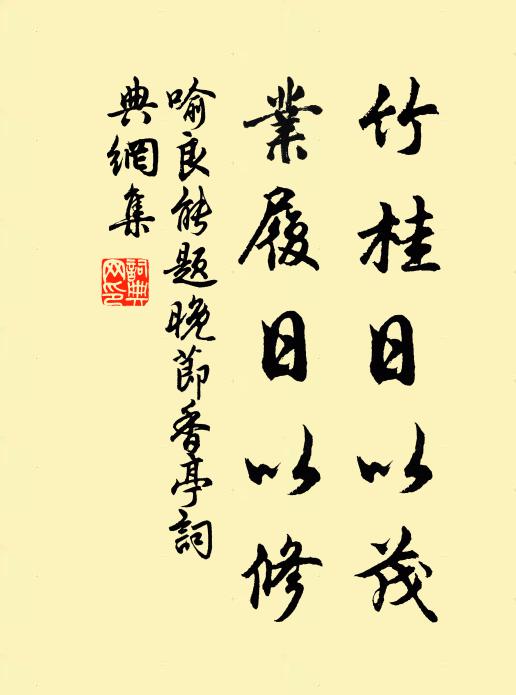 竹桂日以茂
業履日以修
喻良能题晚節香亭詞
典網集
詞典
网印